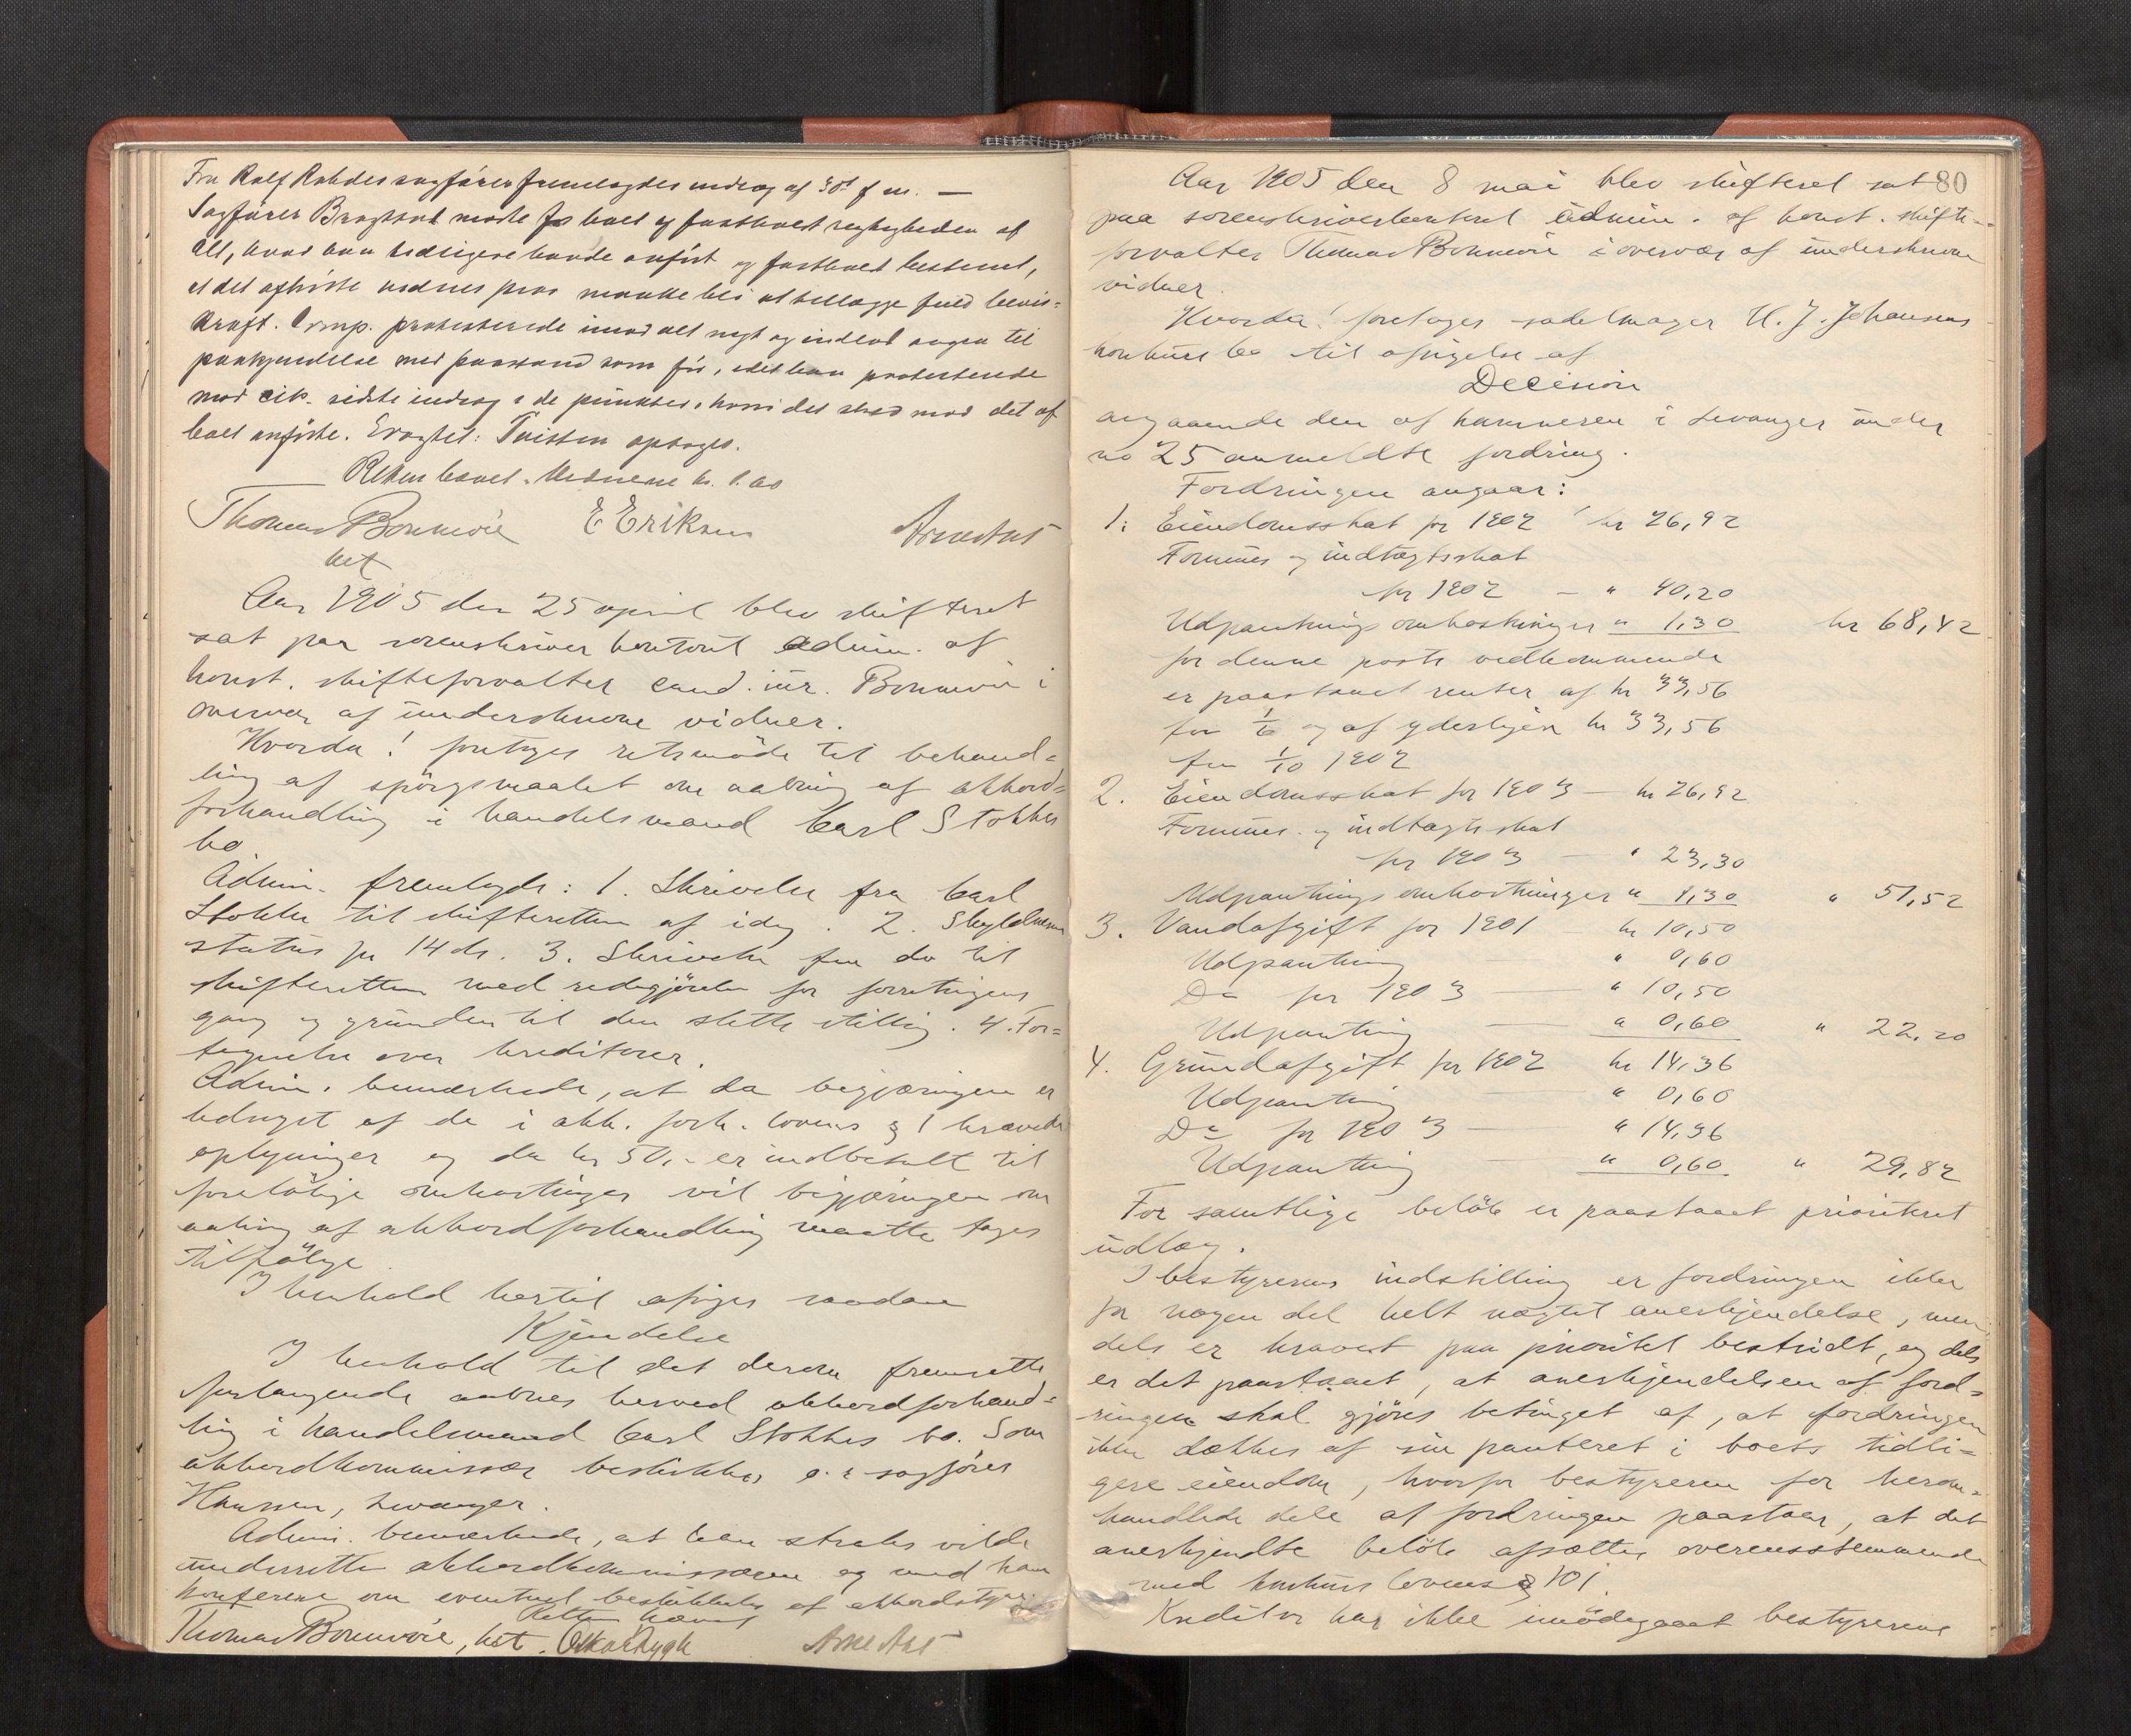 Fra Rolf Rohdes sagfører fremlagdes indlæg af 30d f m. —
Sagfører Bragstad mødte for boet og fastholdt rigtigheden af
alt, hvad han tidligere havde anført og fastholdt bestemt,
at det afhørte vidnes prov maatte bli at tillægge fuld bevis=
kraft. Comp. protesterede imod alt nyt og indlod sagen til
paakjendelse med paastand som før, idet han protesterede
mod cit. sidste indlæg i de punkter, hvori det stred mod det af
boet anførte. Eragtet: Tvisten optages.
Retten hævet. Vidnerne kr. 1.60
Thomas Bonnevie E Eriksen Arne Aas
kst
Aar 1905 den 25 april blev skifteret
sat paa sorenskriver kontoret admin. af
konst. skifteforvalter cand. jur. Bonnevie i
overvær af underskrevne vidner.
Hvorda! foretages retsmøde til behand=
ling af spørgsmaalet om aabning af akkord=
forhandling i handelsmand Carl Stokkes
bo.
Admin. fremlagde: 1. Skrivelse fra Carl
Stokke til skifteretten af idag. 2. Skyldneren
status pr 14 ds. 3. Skrivelse fra do til
skifteretten med redegjørelse for forretningens
gang og grunden til den slette stilling. 4. For=
tegnelse over kreditorer.
Admin. bemærkede, at da begjæringen er
ledsaget af de i akk. forh. lovens § 1 krævede
oplysninger og da kr 50,- er indbetalt til
foreløbige omkostninger vil begjæringen om
aabning af akkordforhandling maatte tages
tilfølge
I henhold hertil afsiges saadan
Kjendelse
I henhold til det derom fremsatte
forlangende aabnes herved akkordforhand=
ling i handelsmand Carl Stokkes bo. Som
akkordkommissær beskikkes o. r sagfører
Hanssen, Levanger.
Admin. bemærkede, at han straks vilde
underrette akkordkommissæren og med ham
konferere om eventuel beskikkelse af akkordstyre.
Retten hævet
Thomas Bonnevie, kst. Oskar Rygh Arne Aas
80
Aar 1905 den 8 mai blev skifteret sat
paa sorenskriverkontoret admin. af konst. skifte=
forvalter Thomas Bonnevie i overvær af underskrevne
vidner.
Hvorda! foretages sadelmager H. J. Johansens
konkursbo til afsigelse af
Decision
angaaende den af kæmneren i Levanger under
no 25 anmeldte fordring.
Fordringen angaar:
1. Eiendomsskat for 1902 kr 26,92
Formues og indtægtsskat
for 1902 — " 40,20
Udpantnings omkostninger " 1,30 kr 68,42
for denne posts vedkommende
er paastaaet renter af kr 33,56
fra 1/6 og af yderligere kr 33,56
fra 1/10 1902
2. Eiendomsskat for 1903 — kr 26,92
Formues. og indtægtsskat
for 1903 — " 23,30
Udpantnings omkostninger " 1,30 " 51,52
3. Vandafgift for 1901 — kr 10,50
Udpantning — " 0,60
Do for 1903 — " 10,50
Udpantning — " 0,60 " 22,20
4. Grundafgift for 1902 kr 14,36
Udpantning — " 0,60
Do for 1903 — " 14,36
Udpantning — " 0,60 " 29,82
For samtlige beløb er paastaaet prioriteret
udlæg.
I bestyrerens indstilling er fordringen ikke
for nogen del helt nægtet anerkjendelse, men
dels er kravet paa prioritet bestridt, og dels
er det paastaaet, at anerkjendelsen af ford=
ringen skal gjøres betinget af, at fordringen
ikke dækkes af sin panteret i boets tidli=
gere eiendom, hvorfor bestyreren for herom=
handlede dele af fordringen paastaar, at det
anerkjendte beløb afsættes overensstemmende
med konkurs lovens § 101.
Kreditor har ikke imødegaaet bestyrerens